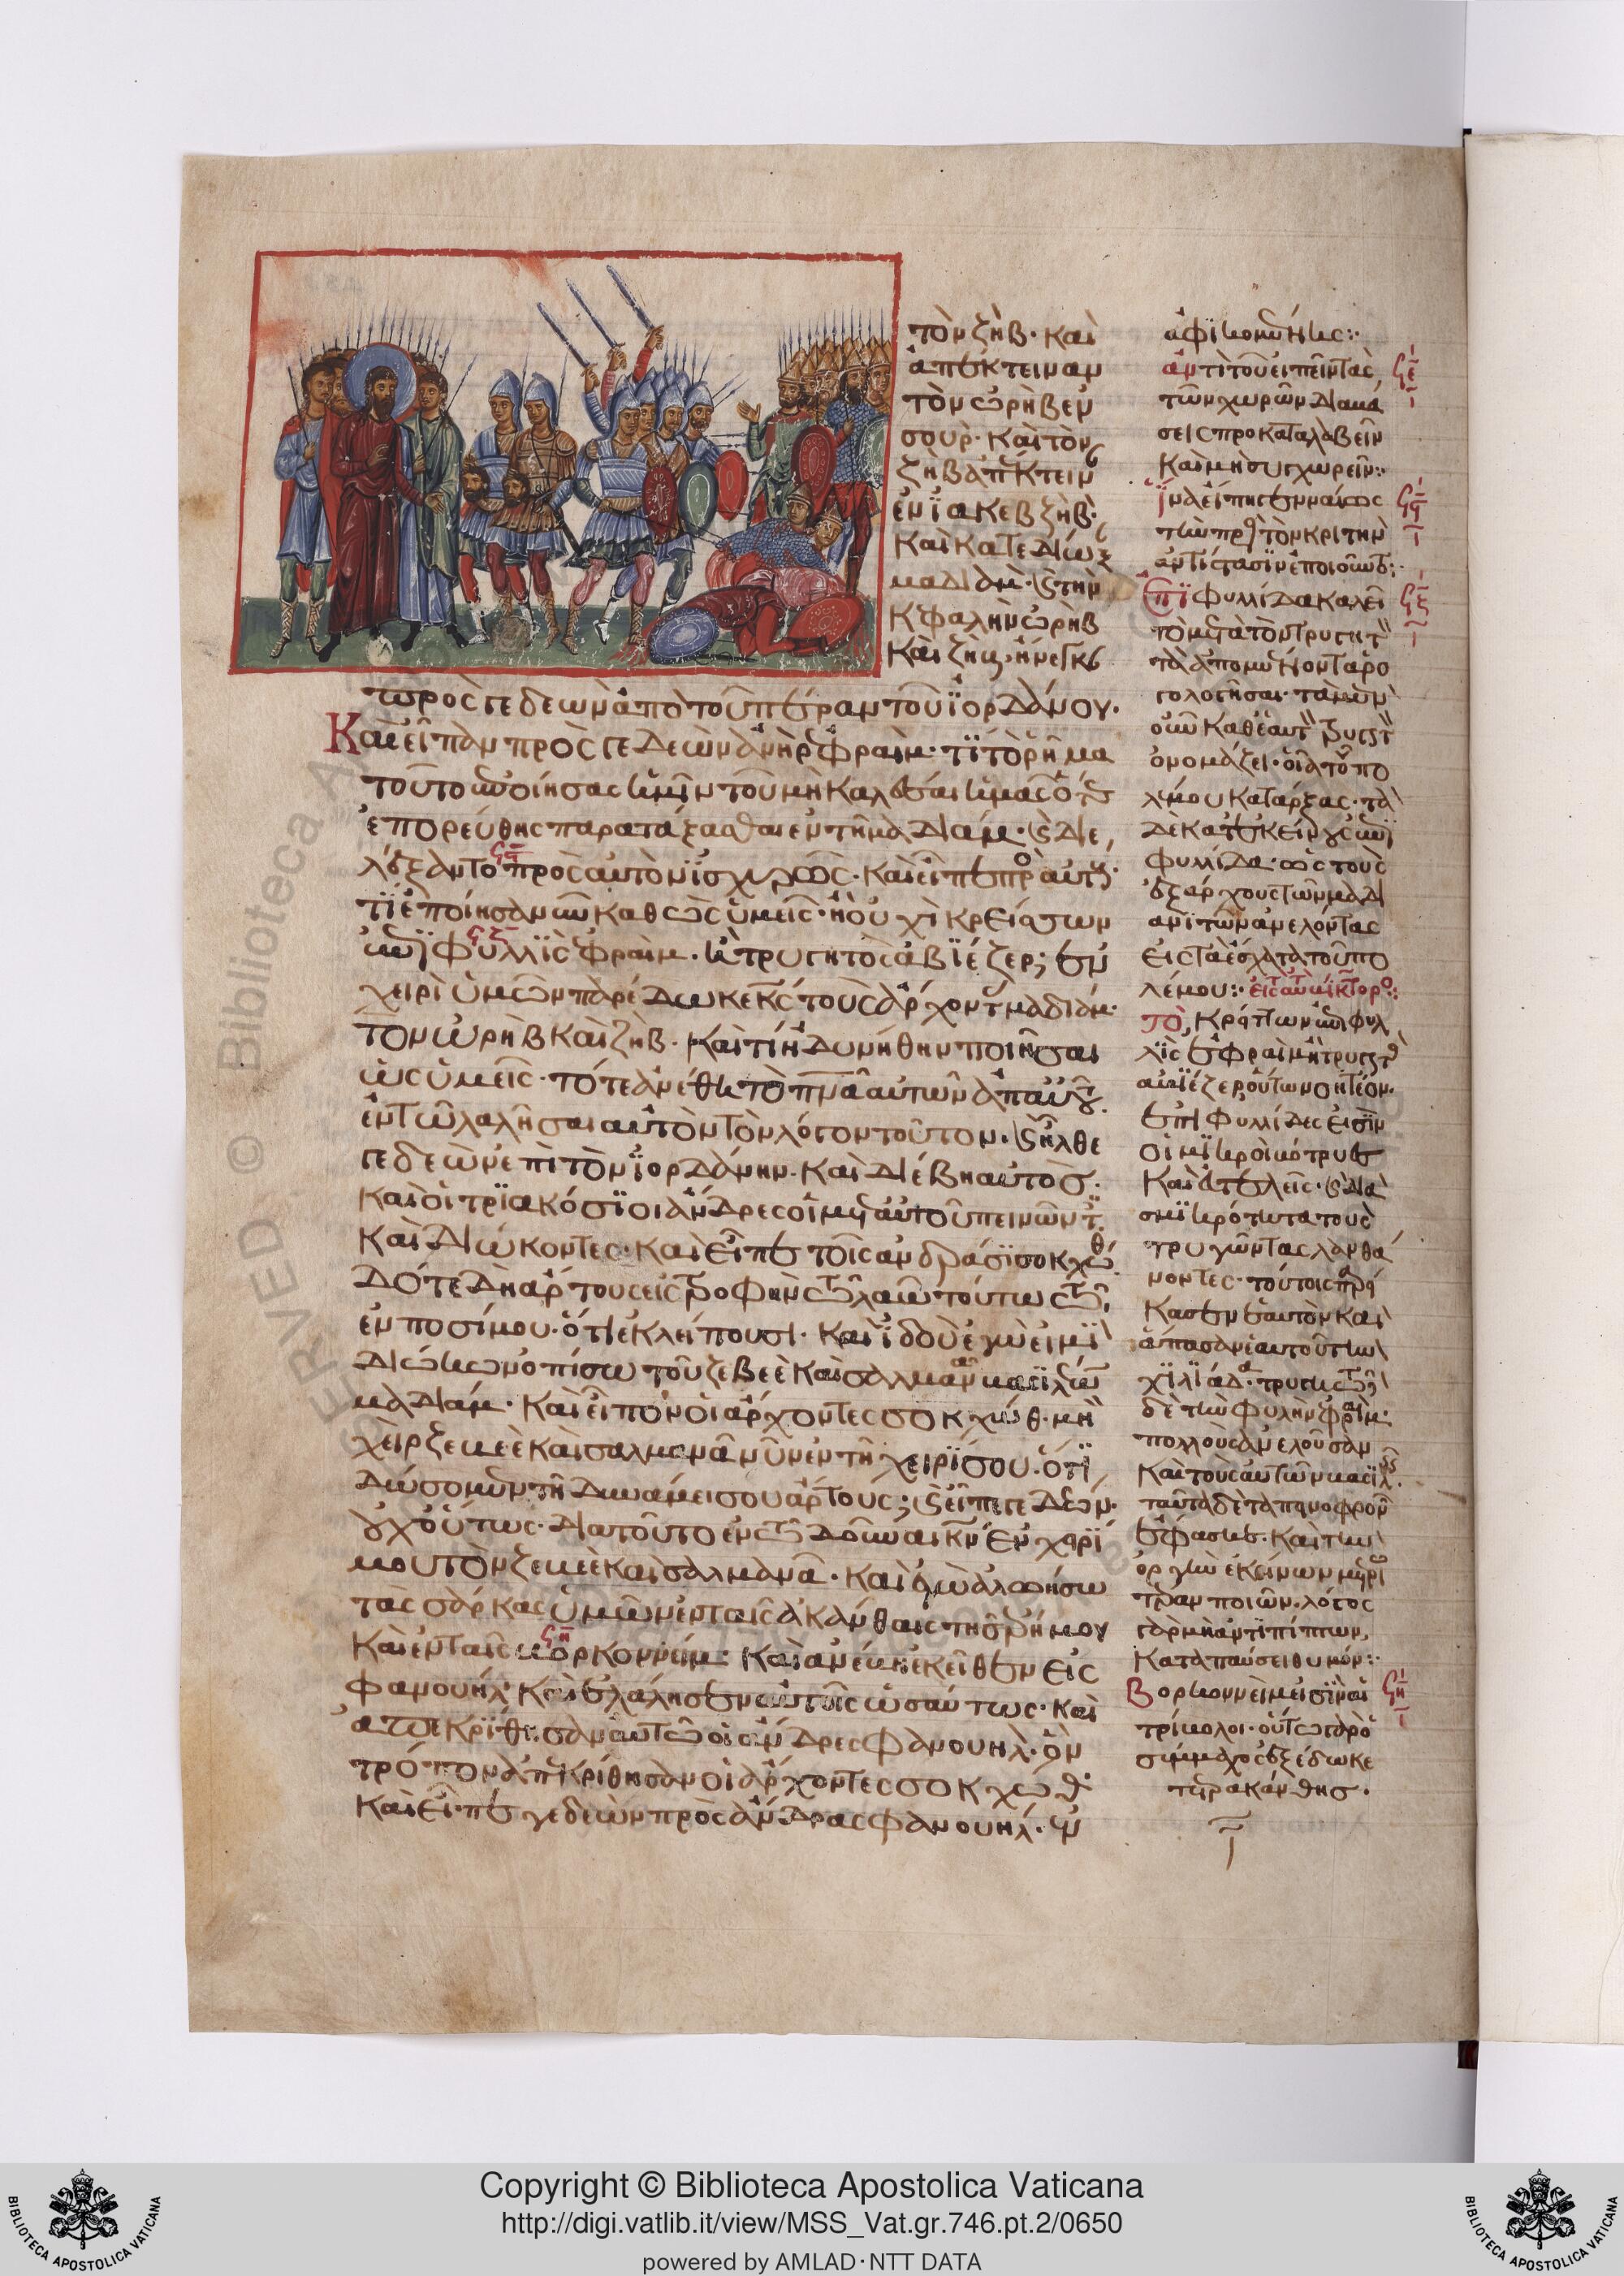 τὸν ζὴβ· καὶ
ἀπέκτειναν
τὸν ὠρὴβ ἐν
σούρ· καὶ τὸν
ζὴβ ἀπέκτειν
ἐν ἰακεβζὴβ·
καὶ κατεδίωξ
μαδιάμ· κ τὴν
κεφαλὴν ὠρὴβ
καὶ ζὴβ, ἤνεγκ
πρὸς γεδεὼν ἀπὸ τοῦ πέραν τοῦ ἰορδάνου.
Καὶ εἶπαν πρὸς γεδεὼν ἀνὴρ ἐφραίμ· τί τὸ ῥῆμα
τοῦτο ἐποίησας ἡμῖν τοῦ μὴ καλέσαι ἡμᾶς ὅτε
ἐπορεύθης παρατάξασθαι ἐν τῇ μαδιάμ· κ διε
λέξαντο πρὸς αὐτὸν ἰσχυρῶς· καὶ εἶπε πρ αὐτούς·
τί ἐποίησα νῦν καθὼς ὑμεῖς· ἢ οὐχὶ κρείσσων
ἐπιφυλλὶς ἐφραίμ· ἢ τρυγητὸς ἀβιέζερ; ἐν
χειρὶ ὑμῶν παρέδωκε κς τοὺς ἄρχοντ μαδιάμ·
τὸν ὠρὴβ καὶ ζήβ· καὶ τί ἠδυνήθην ποιῆσαι
ὡς ὑμεῖς· τότε ἀνέθη τὸ πνα αὐτῶν ἀπ αὐτοῦ
ἐν τῷ λαλῆσαι αὐτὸν τὸν λόγον τοῦτον· κ ἦλθε
γεδεὼν ἐπὶ τὸν ἰορδάνην· καὶ διέβη αὐτὸς·
καὶ οἱ τριακόσιοι ἄνδρες οἱ μετ αὐτοῦ πεινῶντ
καὶ διώκοντες· καὶ εἶπε τοῖς ἀνδράσι σοκχώθ
δότε δὴ ἄρτους εἰς τροφὴν τῷ λαῷ τούτῳ τῷ
ἐν ποσί μου· ὅτι ἐκλείπουσι· καὶ ἰδοὺ ἐγώ εἰμι
διώκων ὀπίσω τοῦ ζεβεὲ καὶ σαλμανᾶ βασιλέων
μαδιάμ· καὶ εἶπον οἱ ἄρχοντες σοκχώθ· μὴ
χεὶρ ζεβεὲ καὶ σαλμανᾶ νῦν ἐν τῇ χειρί σου· ὅτι
δώσομεν τῇ δυνάμει σου ἄρτους; κ εἶπε γεδεών·
οὐχ οὕτως· διὰ τοῦτο ἐν τῷ δοῦναι κν ἐν χειρί
μου τὸν ζεβεὲ καὶ σαλμανᾶ· καὶ ἐγὼ ἀλοήσω
τὰς σάρκας ὑμῶν ἐν ταῖς ἀκάνθαις τῆς ἐρήμου
καὶ ἐν ταῖς βορκοννείμ· καὶ ἀνέβη ἐκεῖθεν εἰς
φανουήλ· καὶ ἐλάλησεν αὐτοῖς ὡσαύτως· καὶ
ἀπεκρίθησαν αὐτῷ οἱ ἄνδρες φανουήλ· ὃν
τρόπον ἀπεκρίθησαν οἱ ἄρχοντες σοκχώθ·
καὶ εἶπε γεδεὼν πρὸς ἄνδρας φανουήλ· ἐν
ἀφικομένης:
ἀντὶ τοῦ εἰπεῖν τὰς
τῶν χωρῶν διαβά
σεις προκαταλαβεῖν
καὶ μὴ συγχωρεῖν:
ἵνα εἴπῃς ἐνναίως
τὴν πρὸς τὸν κριτὴν
ἀντίστασιν ἐποιοῦντο:
Ἐπιφυλλίδα καλεῖ
τὸ μετὰ τὸν τρυγητ
τὰ ἀπομένοντα ῥο
γολογῆσαι· τὰ μὲν
οὖν καθ ἑαυτ τρυγητ
ὀνομάζει· οἷα τοῦ πο
λέμου κατάρξας· τὰ
δὲ κατ ἐκείνους ἐπι
φυλλίδα· ὡς τοὺς
ἐξάρχους τῶν μαδι
ανιτῶν ἀνελόντας
εἰς τὰ ἔσχατα τοῦ πο
λέμου:
τὸ, κρείττων ἐπιφυλ
λὶς ἐφραὶμ ἢ τρυγητ
ἀβιέζερ, οὕτω νοητέον·
ἐπιφυλλίδες εἰσὶν
οἱ μικροὶ βότρυες
καὶ ἀτελεῖς· κ διὰ
σμικρότητα τοὺς
τρυγῶντας λανθά
νοντες· τούτοις παρεί
κασεν ἑαυτὸν καὶ
ἅπασαν αὐτοῦ τὴν
χιλιάδα· τρυγητῷ
δὲ τὴν φυλὴν ἐφραίμ·
πολλοὺς ἀνελοῦσαν
καὶ τοὺς αὐτῶν βασιλ
ταῦτα δὲ ταπεινοφρον
ἔφασκε· καὶ τὴν
ὀργὴν ἐκείνων μετρι
τέραν ποιῶν· λόγος
γὰρ μὴ ἀντιπίπτων,
καταπαύσει θυμόν:
Βορκοννεὶμ εἰσὶν οἱ
τρίβολοι· οὕτω γὰρ ὁ
σύμμαχος ἐξέδωκε
περὶ ἀκάνθης·
Copyright © Biblioteca Apostolica Vaticana
http://digi.vatlib.it/view/MSS_Vat.gr.746.pt.2/0650
powered by AMLAD·NTT DATA
BIBLIOTECA APOSTOLICA VATICANA
BIBLIOTECA APOSTOLICA VATICANA